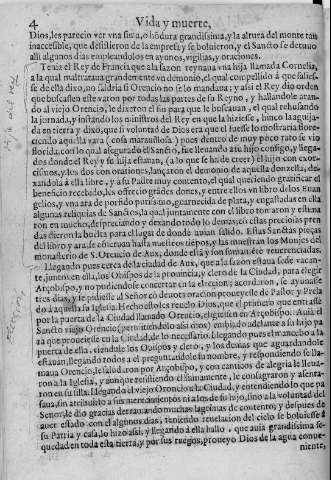 4 Vida y muerte,
Dios, les parecio ver vna sima, o hõdura grandissima, y la altura del monte tan
inaccesible, que desistieron de la empresa y se boluieron, y el Sancto se detuuo
alli algunos dias empleandolos en ayunos, vigilias, y oraciones.
Tenia el Rey de Francia que a la sazon reynaua vna hija llamada Cornelia,
a la qual maltrataua grandemente vn demonio, el qual compellido á que saliesse
se de ella dixo, no saldria si Orencio no se lo mandaua: y assi el Rey dio orden
que buscassen este varon por todas las partes de su Reyno, y hallandole arando
al viejo Orencio, le dieron el fin para que le buscauan, el qual rehusando
la jornada, y instando los ministros del Rey en que la hiziesse, hinco la aguijada
en tierra y dixo, que si voluntad de Dios era que el fuesse lo mostraria floreciendo
aquella vara (cosa marauillosa) pues dentro de muy poco rato se vio
florida, con lo qual assegurado el sancto, fue lleuando assi hijo consigo, y llegados
donde el Rey y su hija estauan, (a lo que se ha de creer) el hijo con exorcismos,
y los dos con oraciones, lançaron el demonio de aquella donzella, dexandola
á ella libre, y á su Padre muy contento, el qual queriendo gratificar el
beneficio recebido, les offrecio grãdes dones, y entre ellos vn libro de los Euangelios,
y vna ara de porfido purissimo, guarnecida de plata, y engastadas en ella
algunas reliquias de Sanctos, la qual juntamente con el libro tomaron y estimaron
en mucho, despreciando y dexando todo lo demas, cõ estas preciosas prendas
dieron la buelta para el lugar de donde auian salido. Estas Sanctas pieças
del libro y ara, se conseruan hasta nuestros tiẽpos, y las muestran los Monjes del
monasterio de S. Orencio de Aux, donde ella y son sumamente reuerenciadas.
Llegando pues cerca de la ciudad de Aux, que a la sazon estaua sede vacante,
juntos en ella, los Obispos de la prouincia, y clero de la Ciudad, para elegir
Arçobispo, y no pudiendose concertar en la eleccion; acordaron, se ayunasse
tres dias, y se pidiesse al Señor cõ deuotas oracion proueyesse de Pastor y Prelado
á aquella su Iglesia. Hecho esto les reuelo Dios, que el primero que entrasse
por la puerta de la Ciudad llamado Orencio, eligiessen en Arçobispo. Auia el
Sancto viejo Orencio (permitiendolo assi dios) embiado adelante a su hijo para
que proueyesse en la Ciudad, de lo necessario. Llegando pues el mancebo a la
puerta de ella, viendole los Obispos y clero, y los demas que aguardandole
estauan, llegando todos a el preguntandole su nombre, y respondiendo se llamaua
Orencio, le saludaron por Arçobispo, y con canticos de alegria le lleuaron
a la Iglesia, y aunque resistiendo el sumamente, le consagraron y asentaron
en su silla. Llegando el viejo Orencio a la Ciudad, y entendiendo lo que passaua,
sin atribuirlo a sus merecimientos ni a los de su hijo, sino a la voluntad del
Señor, le dio gracias derramando muchas lagrimas de contento; y despues de
auer estado con el algunos dias, teniendo reuelacion del cielo se boluiesse á
su Patria y casa, lo hizo assi; y llegando á ella hallo, que auia grandissima sequedad
en toda esta tierra, y por sus ruegos, proueyo Dios de la agua conue-
niente,